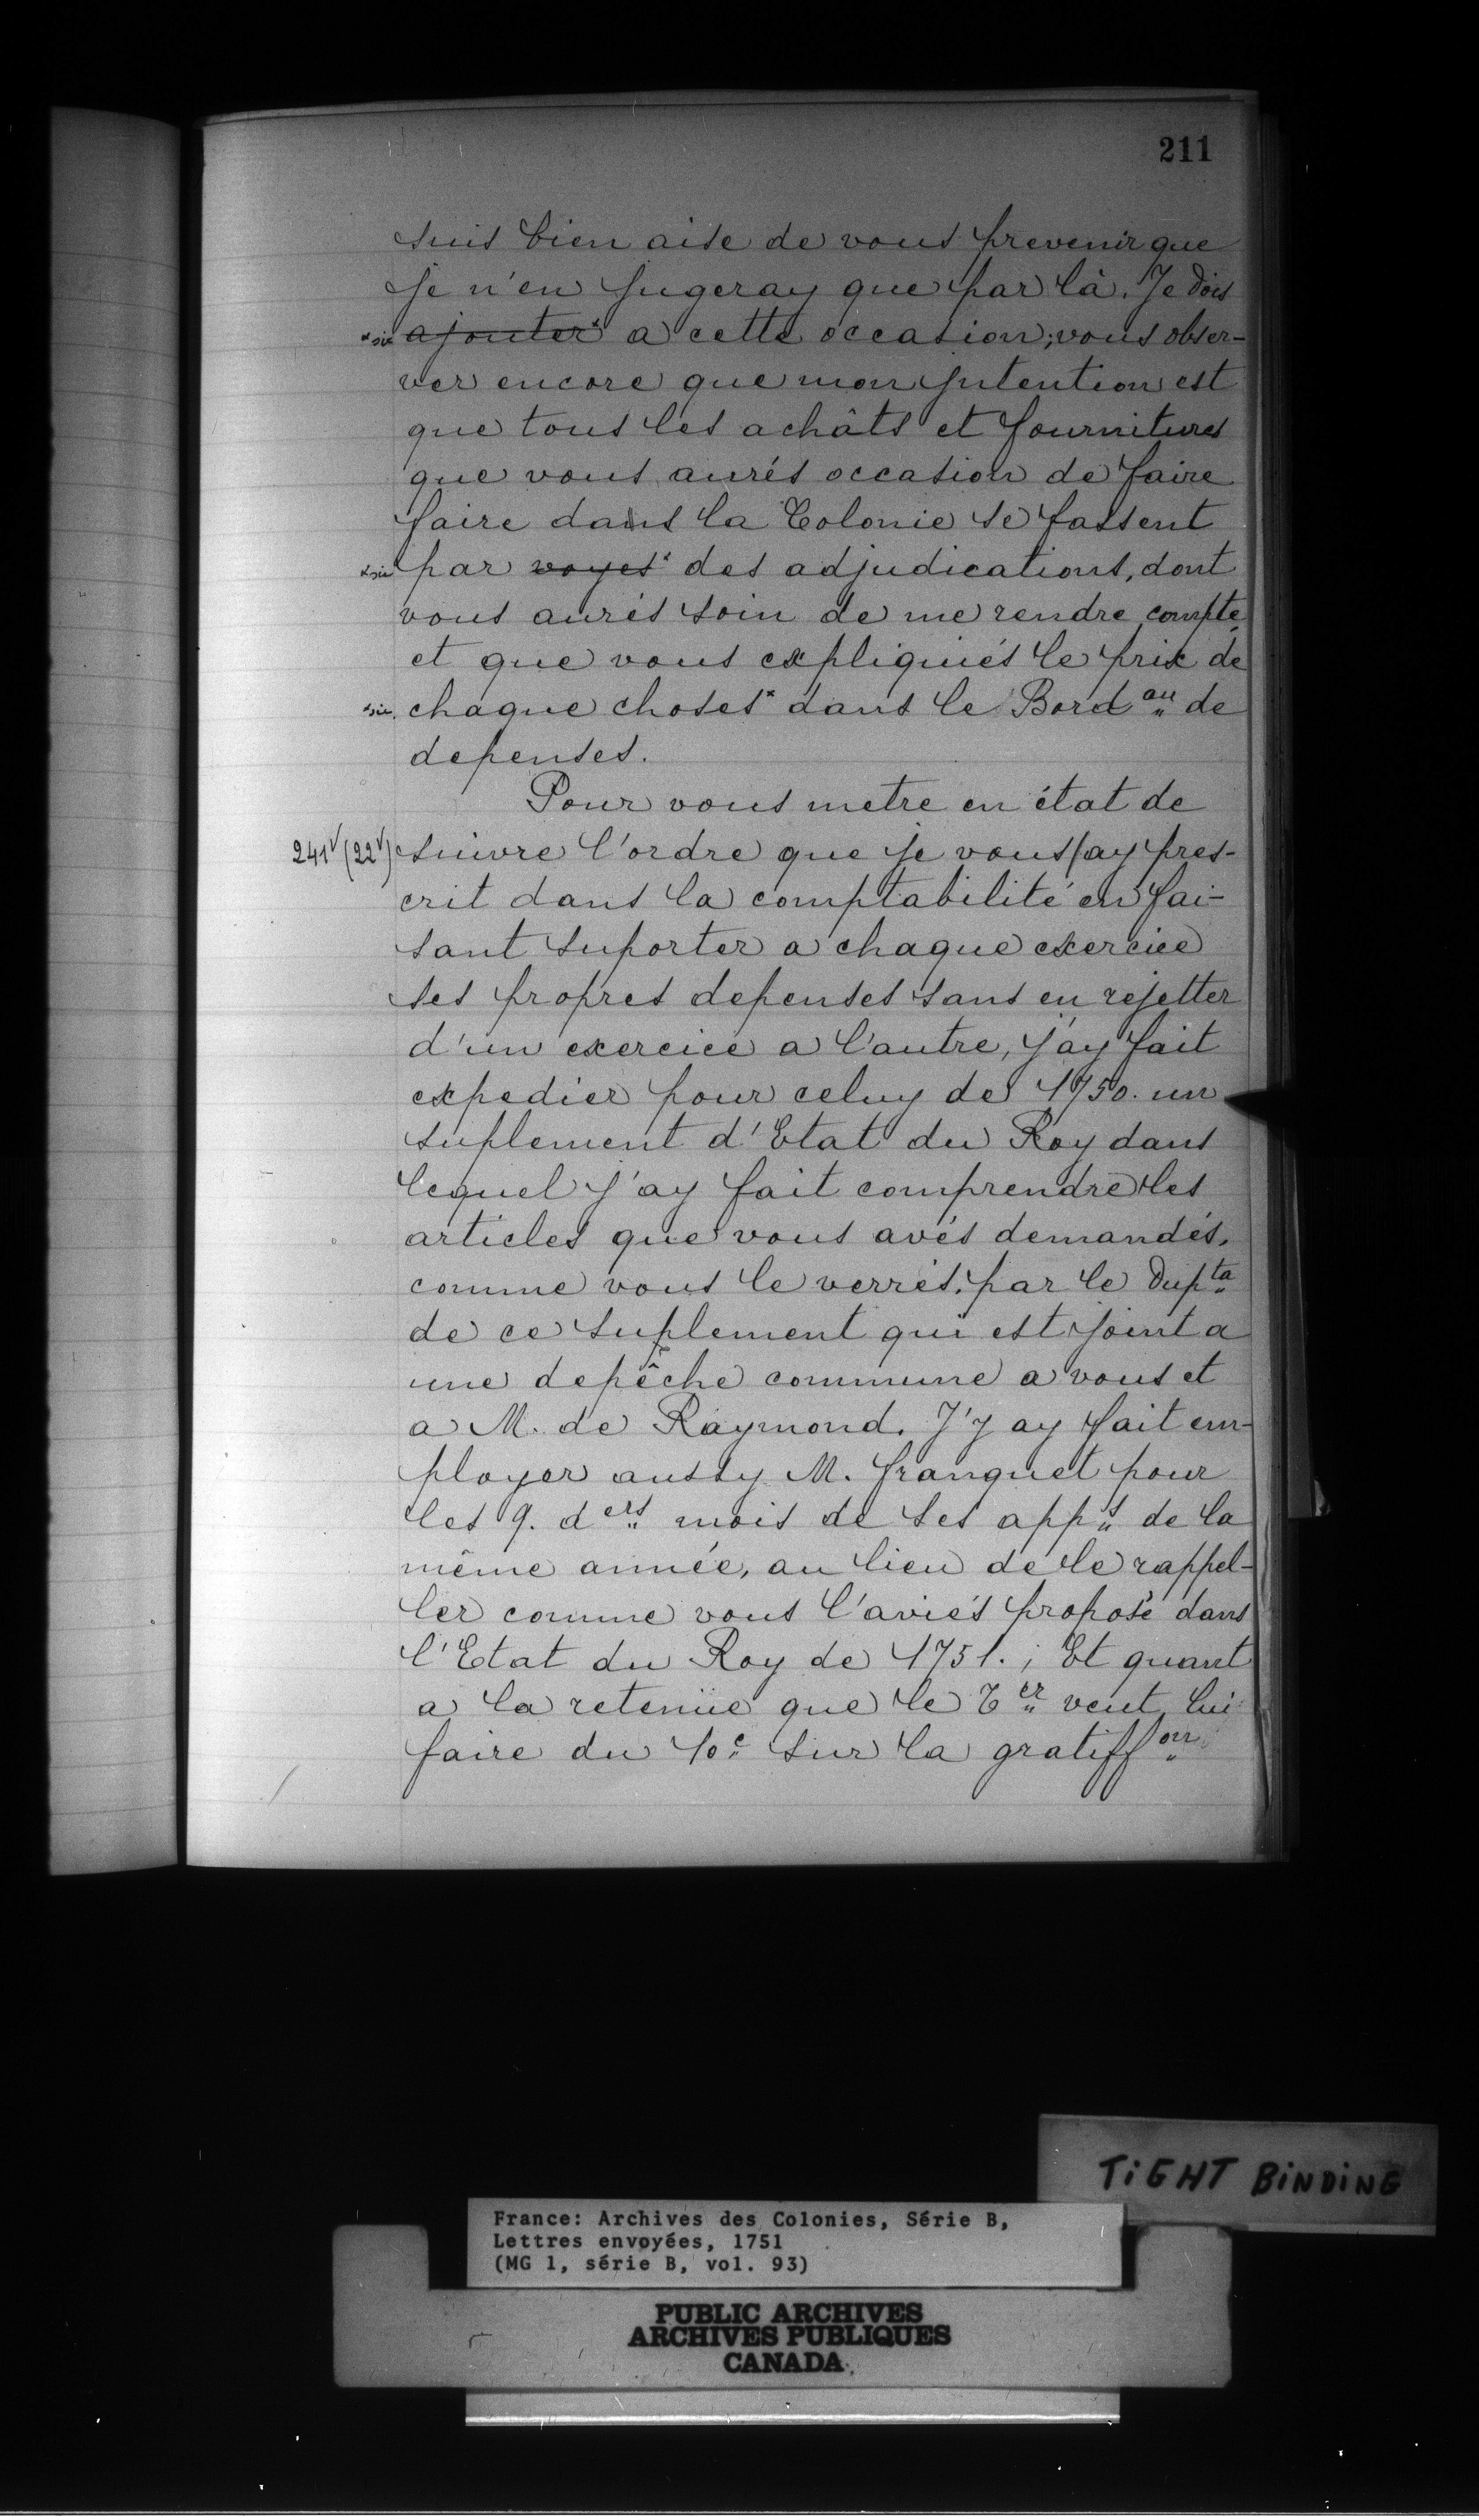 211
suis bien aise de vous prevenir que
je n'en jugeray que par là. Je dois
*sic ajouter* a cette occasion; vous obser-
ver encore que mon jntention est
que tous les achâts et fournitures
que vous aurés occasion de faire
faire dans la Colonie se fassent
*sic par voyes* des adjudications, dont
vous aurés soin de me rendre compte,
et que vous expliquiés le prix de
*sic. chaque choses* dans le Bord.au de
depenses.
Pour vous metre en état de
241v (22v) suivre l'ordre que je vous/ay pres-
crit dans la comptabilité en fai-
sant suporter a chaque exercice
ses propres depenses sans en rejetter
d'un exercice a l'autre, j'ay fait
expedier pour celuy de 1750. un
suplement d'Etat du Roy dans
lequel j'ay fait comprendre les
articles que vous avés demandés,
comme vous le verrés par le dup.ta
de ce suplement qui est joint a
une depêche commune a vous et
a M. de Raymond. J'y ay fait em-
ployer aussy M. franquet pour
les 9. d.ers mois de ses app.s de la
même année, au lieu de le rappel-
ler comme vous l'aviés proposé dans
l'Etat du Roy de 1751.; Et quant
a la retenüe que le T.er veut lui
faire du 10.e sur la gratiff.on
TiGHT BiNDiNG
France: Archives des Colonies, Série B,
Lettres envoyées, 1751
(MG 1, série B, vol. 93)
PUBLIC ARCHIVES
ARCHIVES PUBLIQUES
CANADA